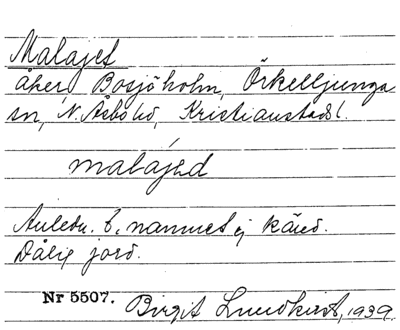 Malajet
åker, Bosjöholm, Örkelljunga
sn, N. Åsbo hd, Kristianstads l.
malajed
Anledn. t. namnet ej känd.
Dålig jord.
Nr 5507. Birgit Lundkvist, 1939.